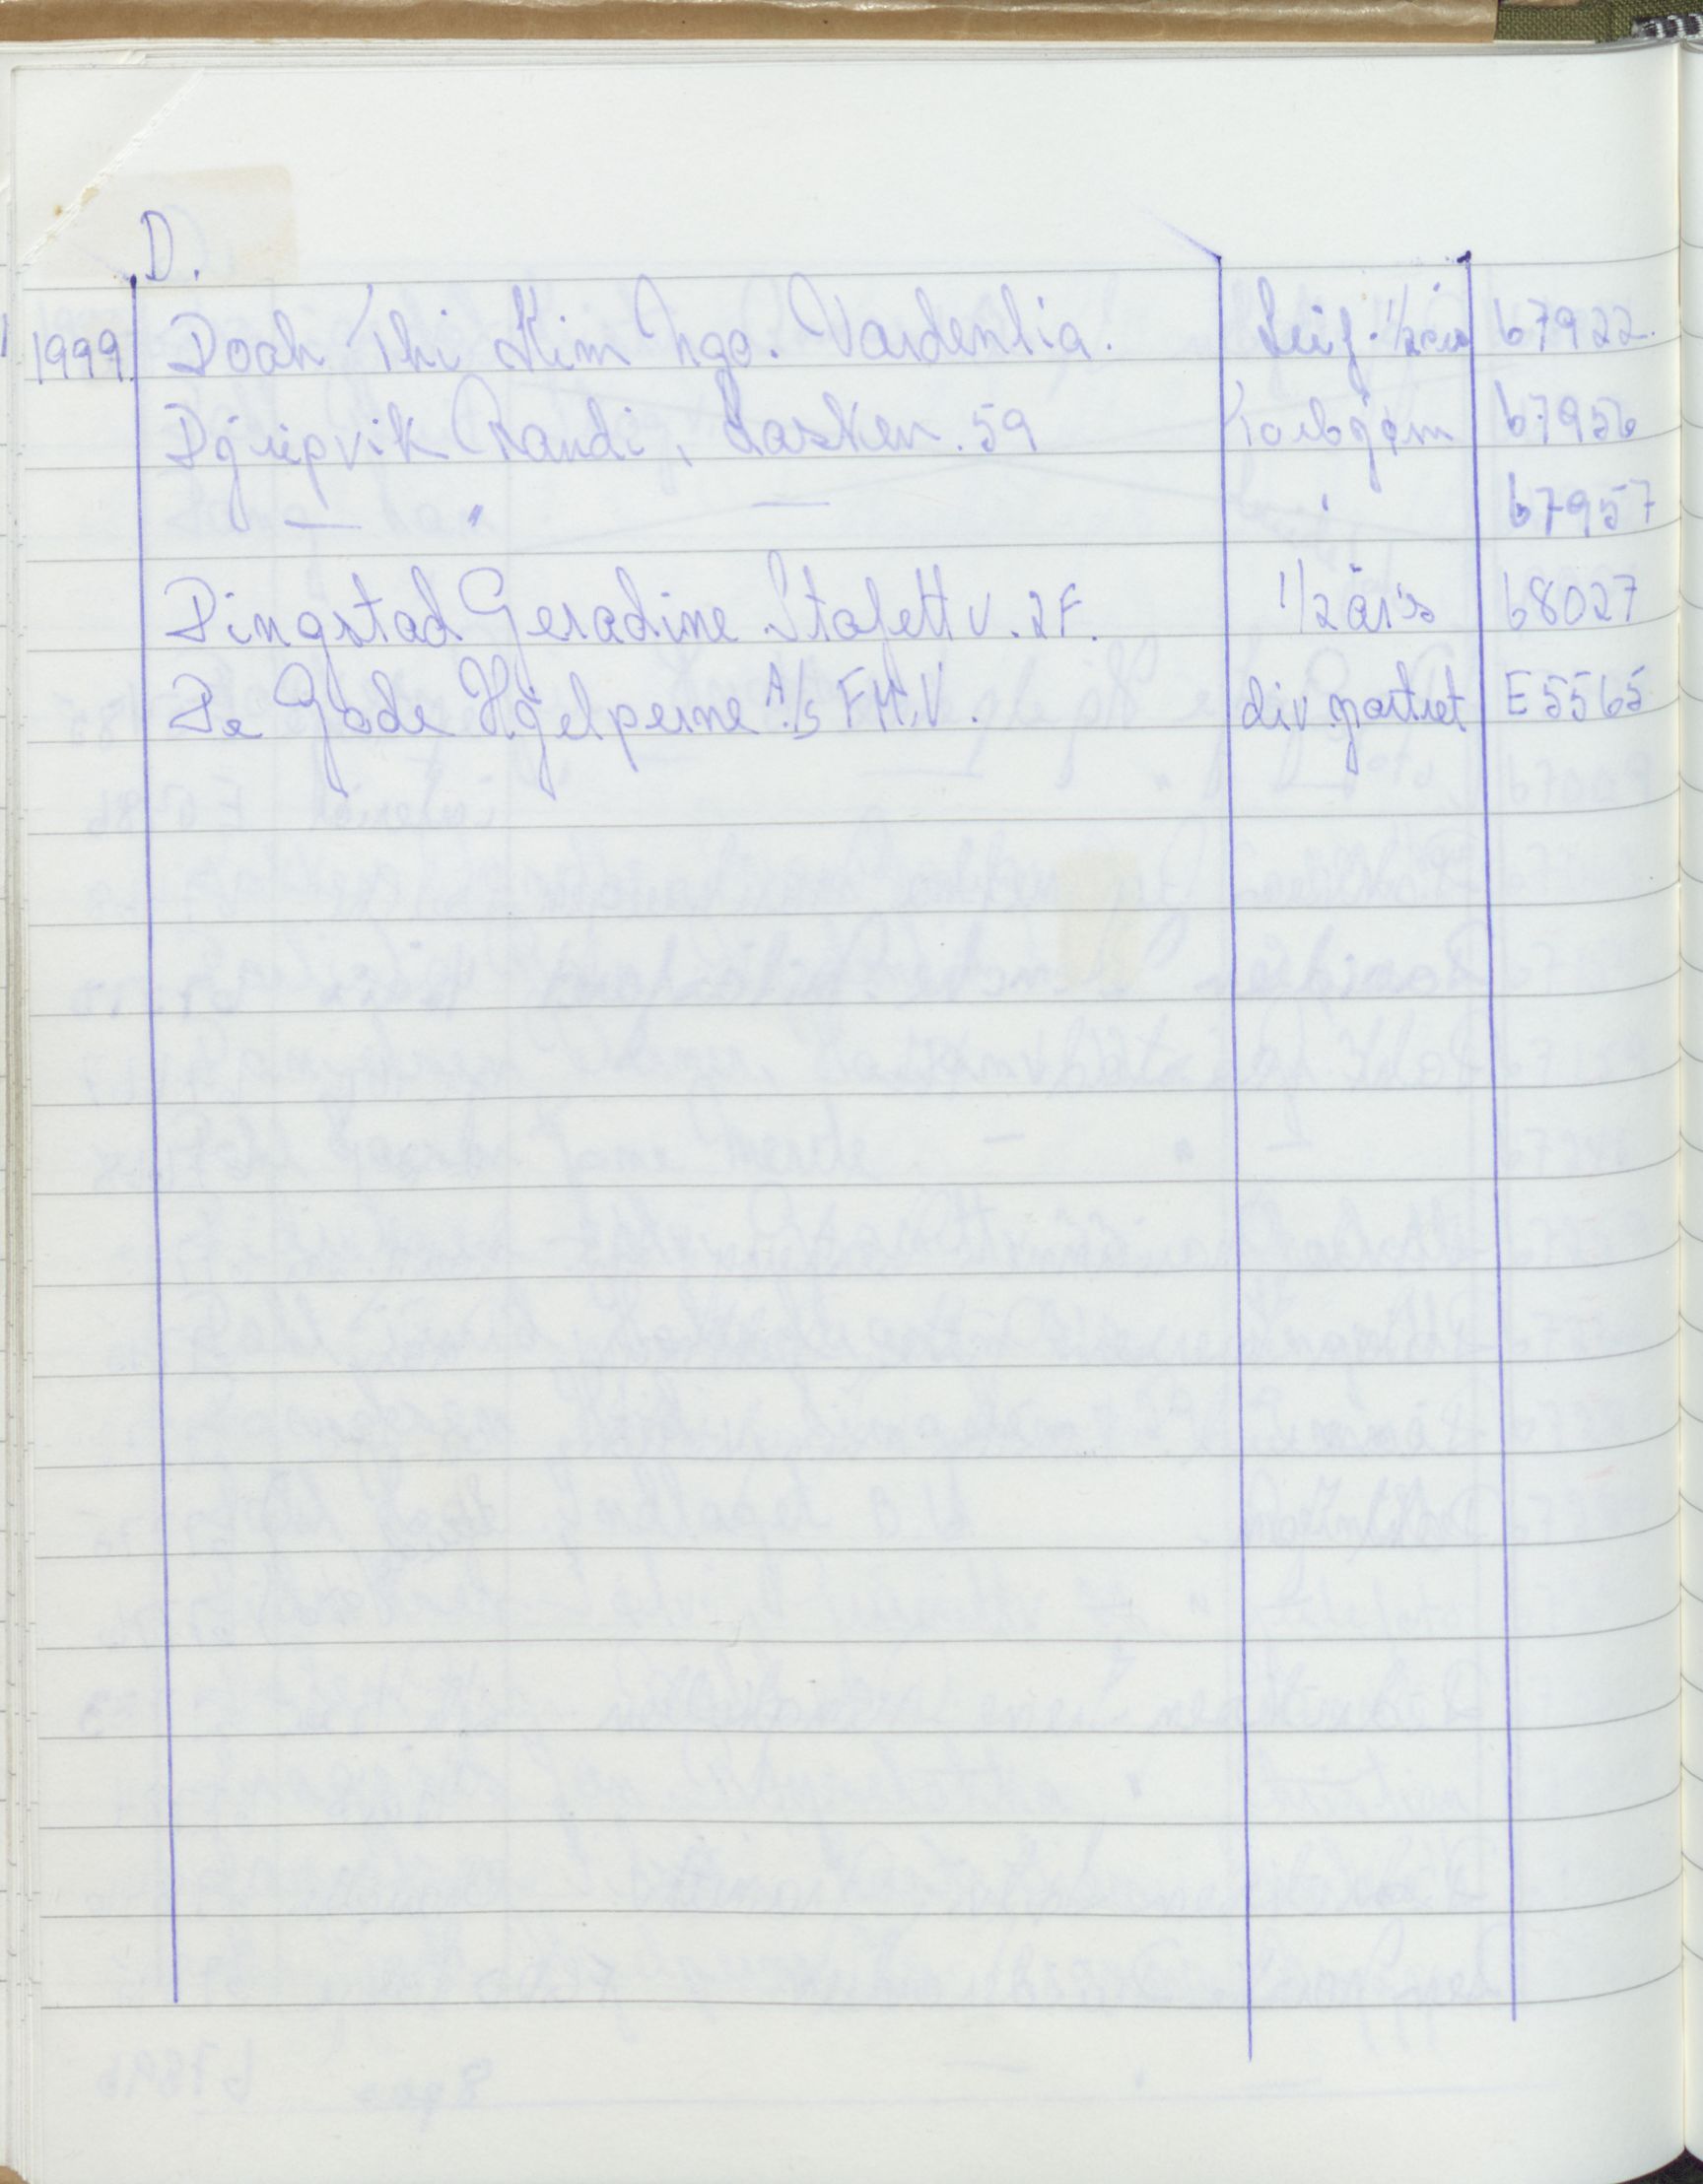 D.
1999. Doah Thi Kim Ngo. Vardenlia. 1/2 67922.
Djupvik Randi, Lasken. 59 67956
— " — " 67957
Dingstad Geradine Stafett v. 2F. 1/2 års 68027
De Gode Hjelperne A/S F.H.V. div. portret E5565